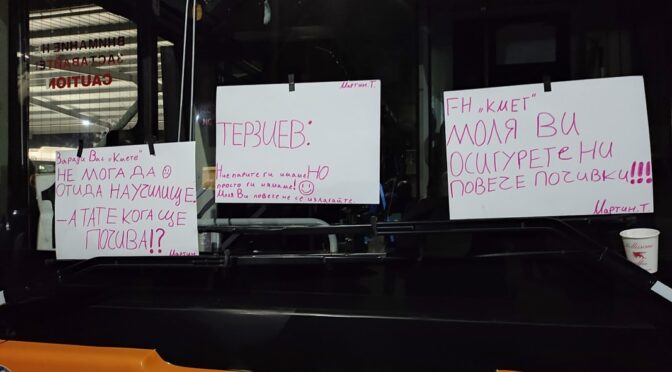 ВНИМАНИЕ И
ЗАСТАВАЙТЕ
CAUTION
Заради Вас „Кмете"
НЕ МОГА ДА
ОТИДА НА УЧИЛИЩЕ.
– А ТАТЕ КОГА ЩЕ
ПОЧИВА!?
Мартин.
Мартин.Т
ТЕРЗИЕВ:
Ние парите ги имаме НО
просто ги нямаме!
Моля Ви повече не се излагайте.
FH „КМЕТ"
МОЛЯ ВИ
ОСИГУРЕТЕ НИ
ПОВЕЧЕ ПОЧИВКИ!!!
Мартин.Т